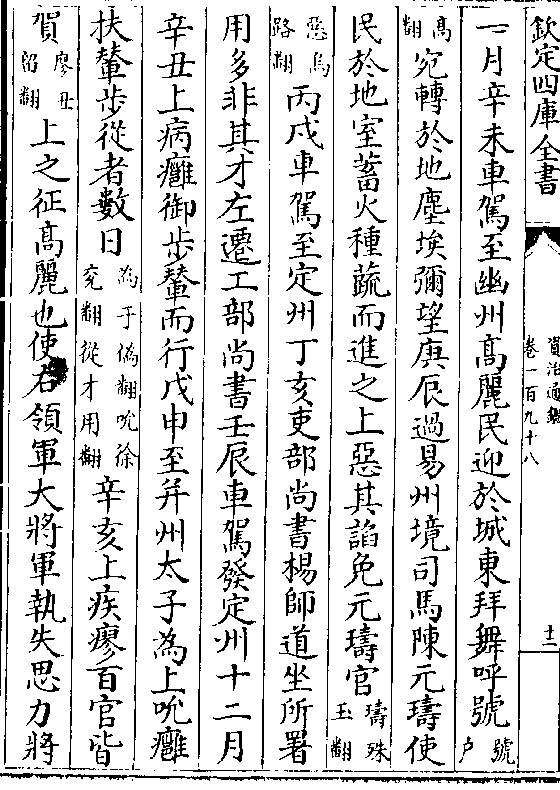 欽定四庫全書
資治通鑑
卷一百九十八
十二
一月辛未車駕至幽州高麗民迎於城東拜舞呼號號戶
高翻宛轉於地塵埃彌望庚辰過易州境司馬陳元璹使
民於地室蓄火種蔬而進之上惡其諂免元璹官璹殊玉翻
惡烏路翻丙戌車駕至定州丁亥吏部尚書楊師道坐所署
用多非其才左遷工部尚書壬辰車駕發定州十二月
辛丑上病癰御步輦而行戊申至并州太子為上吮癰
扶輦步從者數日為于偽翻吮徐兖翻從才用翻辛亥上疾瘳百官皆
賀瘳丑留翻上之征高麗也使右領軍大將軍執失思力將